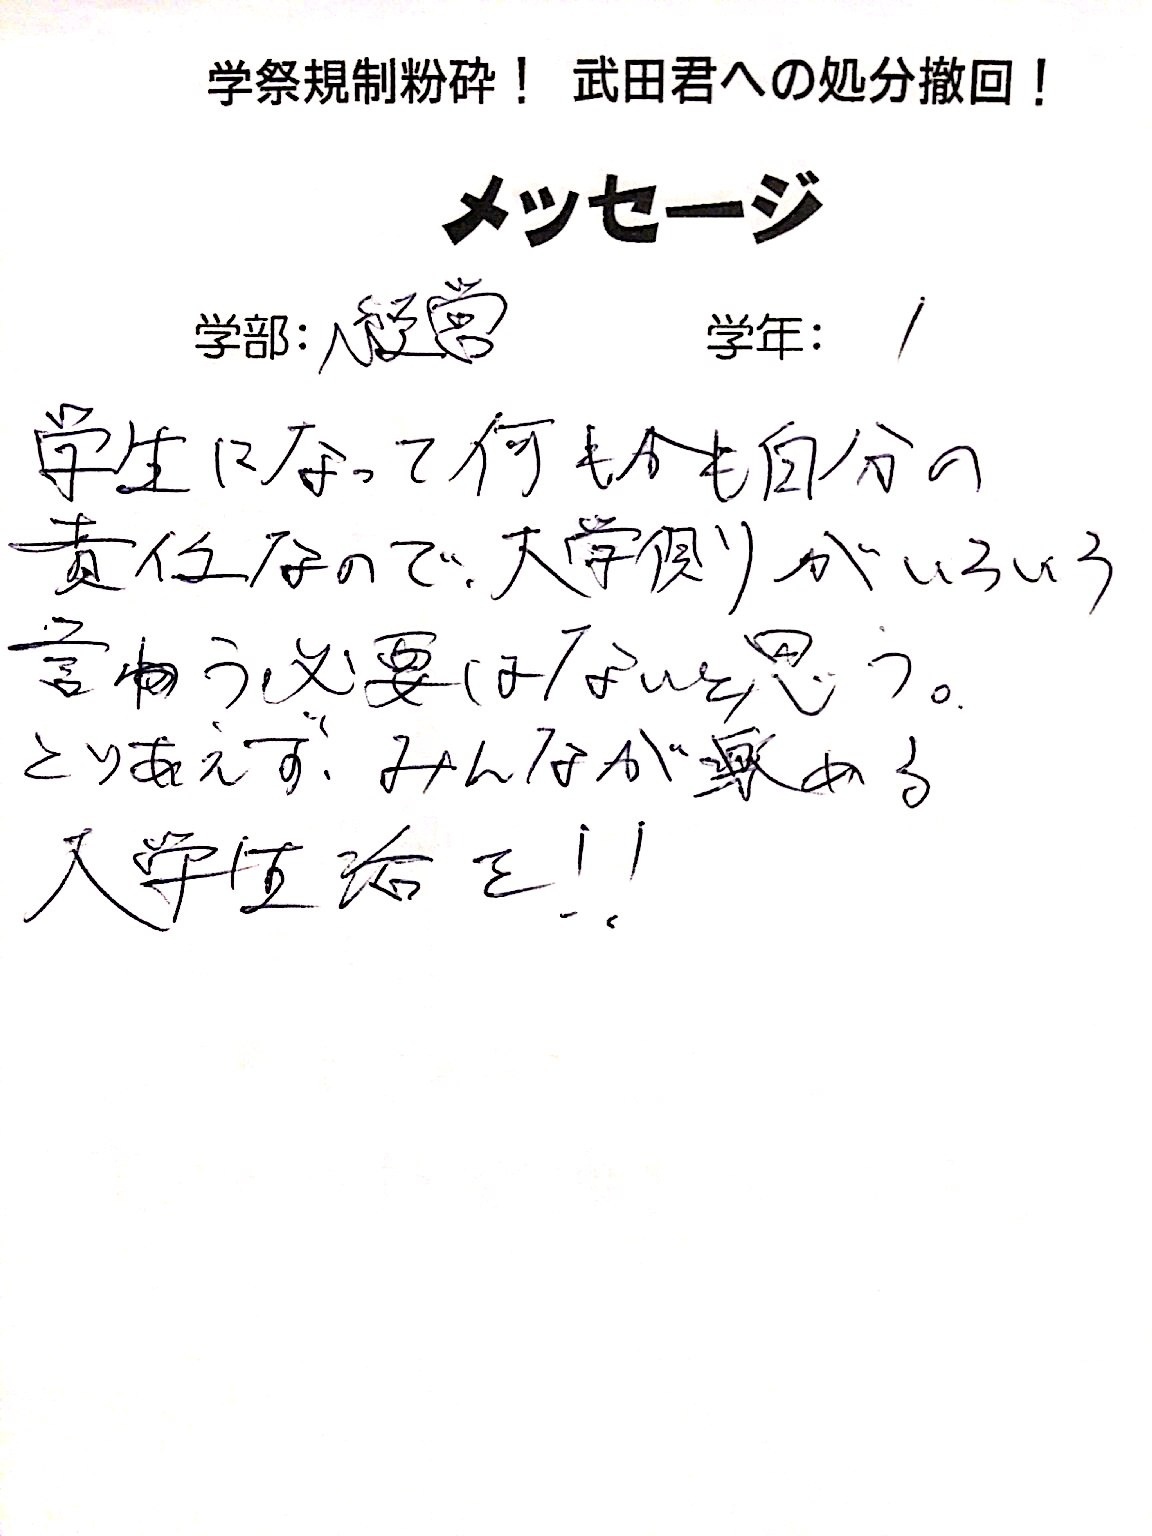 学祭規制粉砕！ 武田君への処分撤回！
メッセージ
学部：経営 学年： 1
学生になって何もかも自分の
責任なので、大学側りがいろいろ
言う必要はないと思う。
とりあえず、みんなが楽める
大学生活を!!